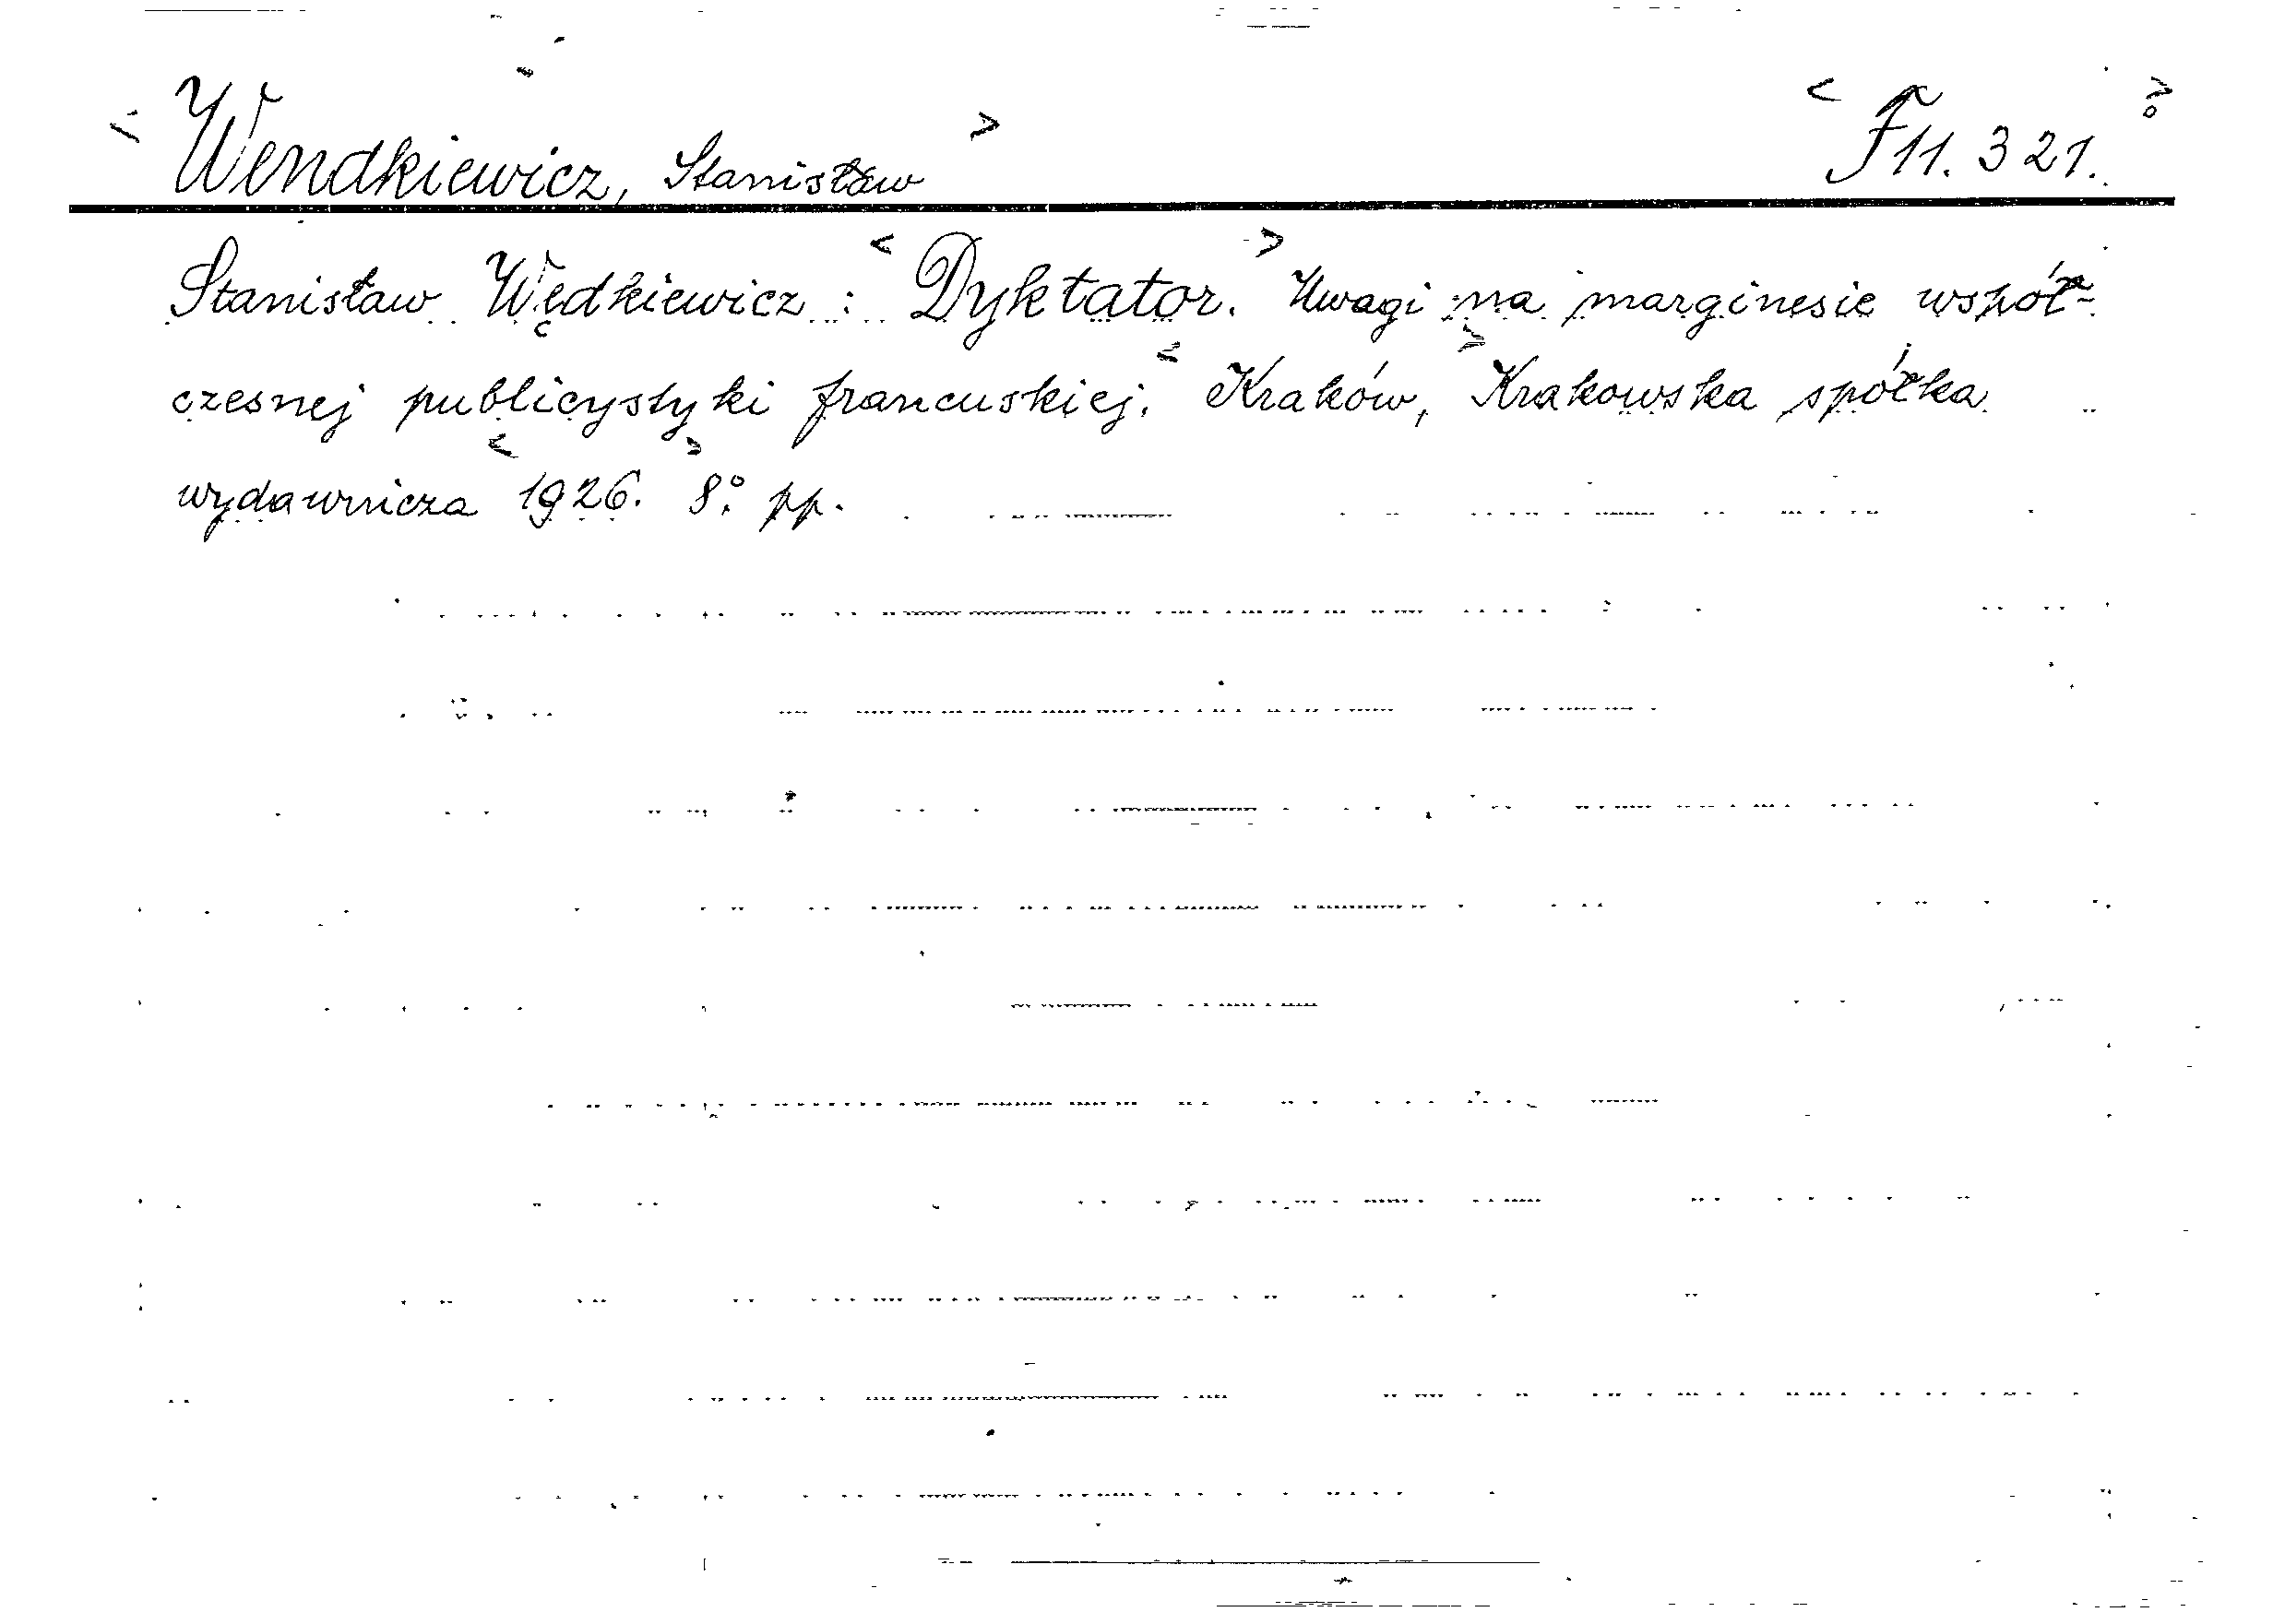 <Wendkiewicz, Stanisław> <F 11. 321.>
Stanisław Wędkiewicz: <Dyktator.> Uwagi na marginesie współ-
czesnej publicystyki francuskiej. <Kraków,> Krakowska spółka
wydawnicza <1926.> 8º pp.